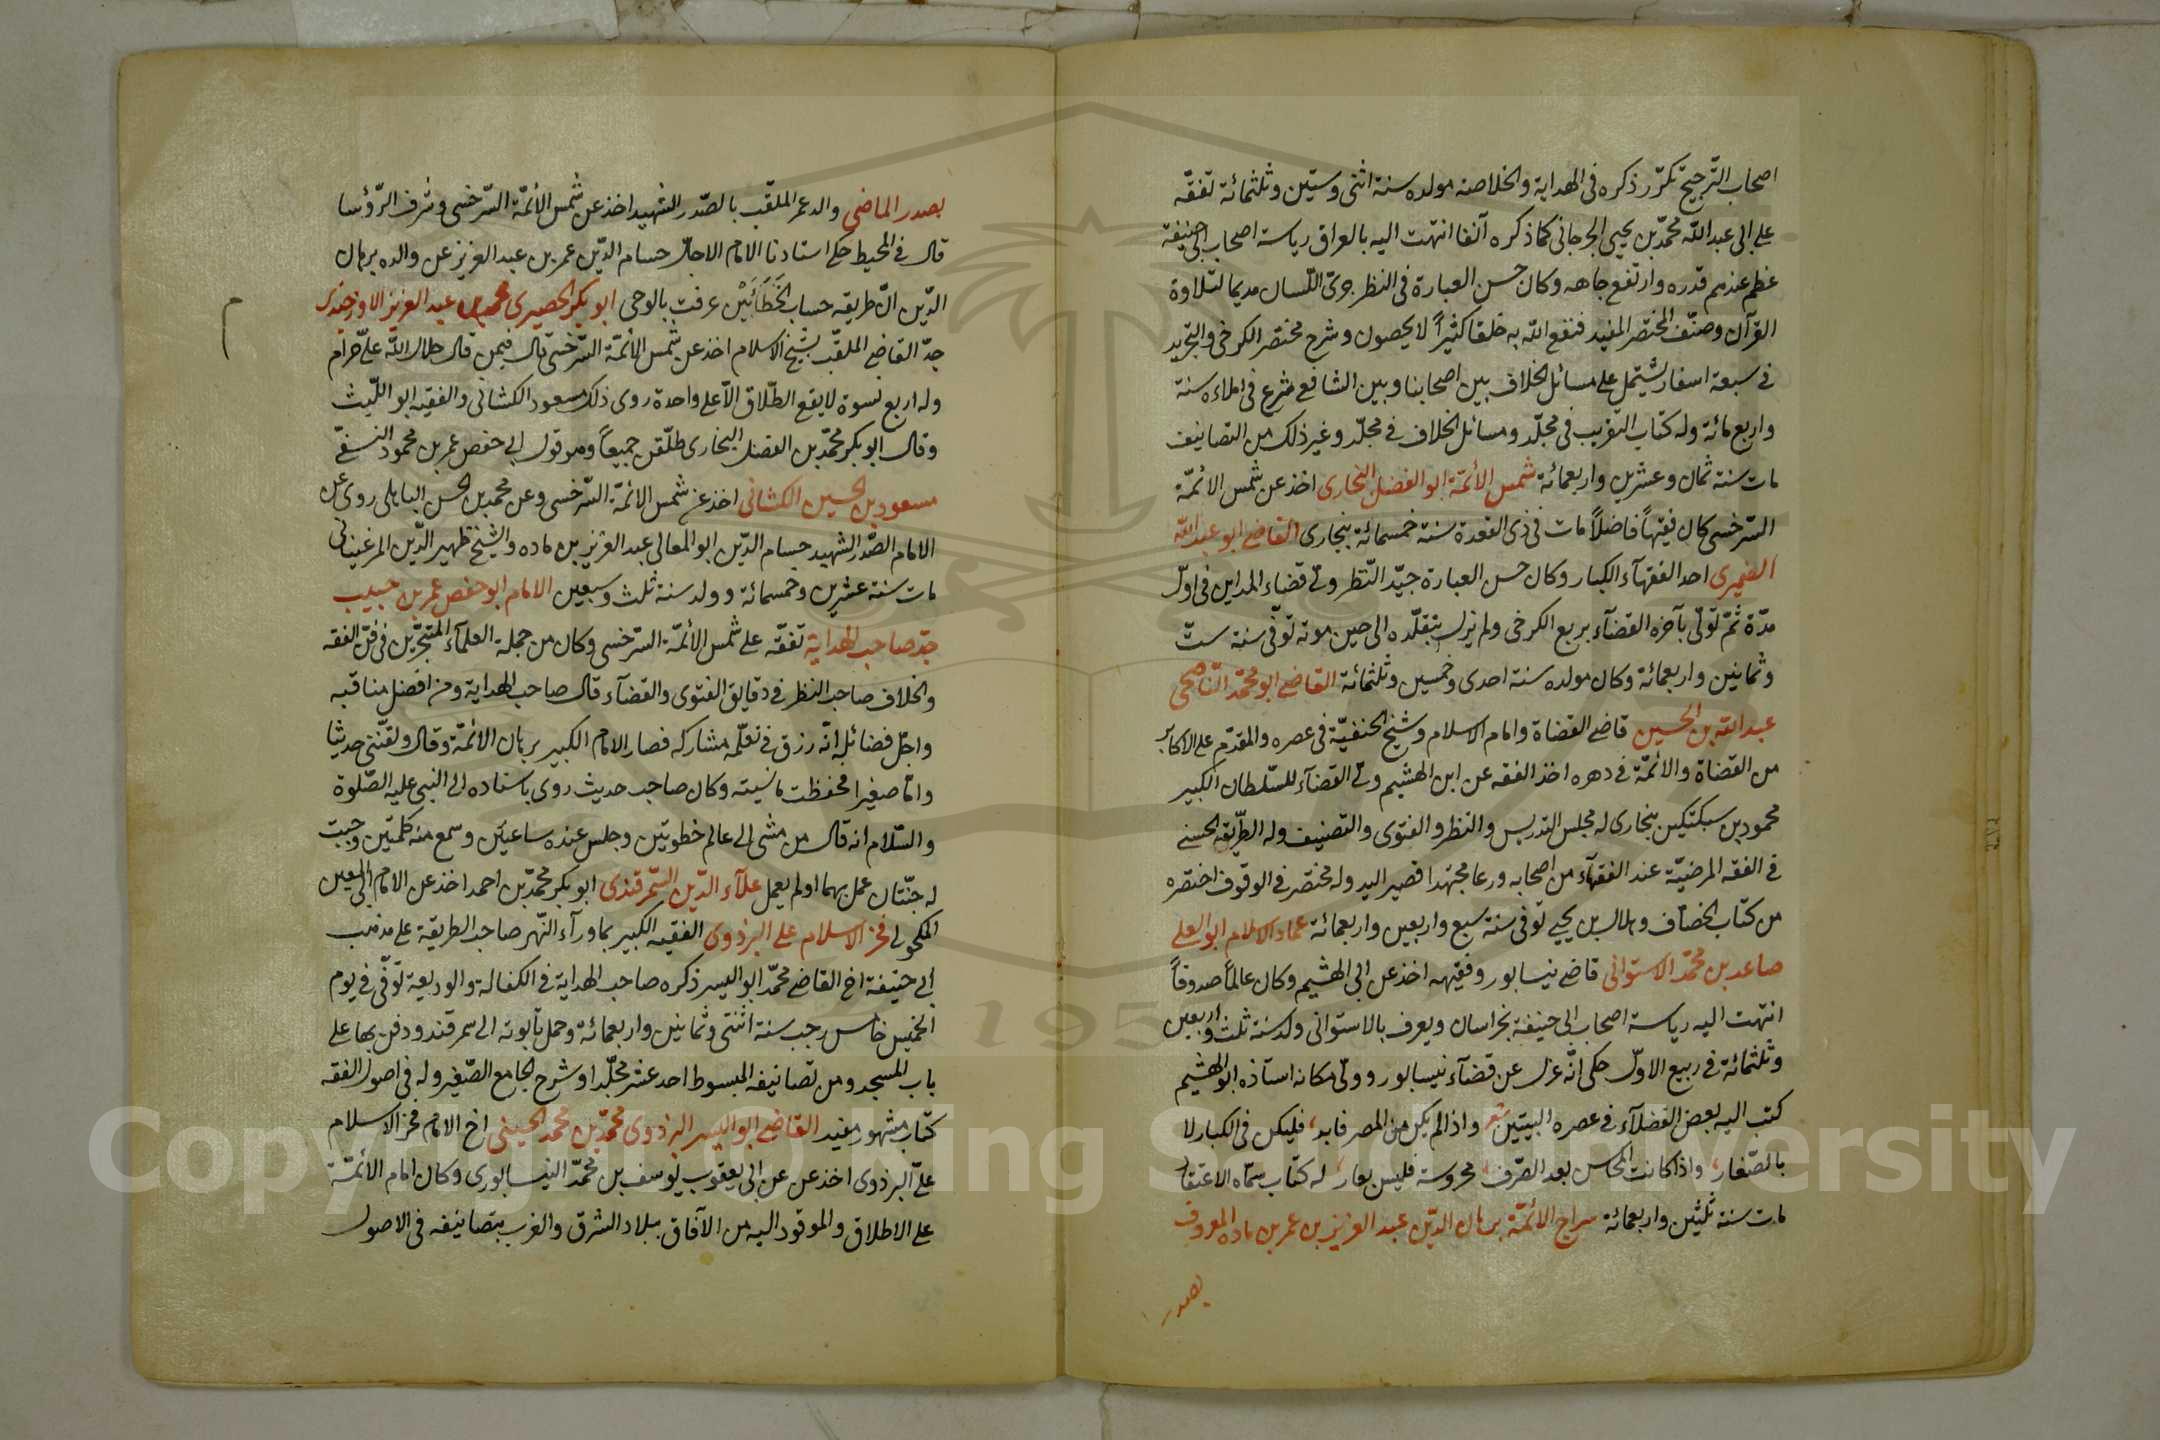 اصحاب الترجيح تكرّر ذكره في الهداية والخلاصة مولده سنة اثنى وستّين وثلثمائة تفقّه
على ابى عبد الله محمّد بن يحيى الجرجانى كما ذكره آنفا انتهت اليه بالعراق رياسة اصحاب ابى حنيفة
عظم عندهم قدره وارتفع جاهه وكان حسن العبارة فى النظر جرىّ اللّسان مديما لتلاوة
القرآن وصنّف المختصر المفيد فنفع الله به خلقا كثيراً لا يحصون وشرح مختصر الكرخى والتجريد
فى سبعة اسفار يشتمل على مسائل الخلاف بين اصحابنا وبين الشافعى شرع فى املاءه سنة
واربع مائة وله كتاب التقريب فى مجلّد ومسائل الخلاف فى مجلّد وغير ذلك من التصانيف
مات سنة ثمان وعشرين واربعمائة شمس الأئمّة ابو الفضل البخارى اخذ عن شمس الائمّة
السّرخسى كان فقيهاً فاضلاً مات فى ذى القعدة سنة خمسمائة ببخارى القاضى ابو عبد الله
الصّيمرى احد الفقهآء الكبار وكان حسن العبارة جيّد النّظر ولّى قضاء المداين فى اوّل
مدّة ثمّ تولّى بآخره القضآء بربع الكرخى ولم يزل يتقلّده الى حين موته توفّى سنة ستّ
وثمانين واربعمائة وكان مولده سنة احدى وخمسين وثلثمائة القاضى ابو محمّد النّاصحى
عبد الله بن الحسين قاضى القضاة وامام الاسلام وشيخ الحنفيّة فى عصره والمقدّم على الاكابر
من القضاة والائمّة فى دهره اخذ الفقه عن ابن الهشيم ولّى القضآء للسّلطان الكبير
محمود بن سبكتكين ببخارى له مجلس التدريس والنظر والفتوى والتصنيف وله الطّريقة الحسنى
فى الفقه المرضيّة عند الفقهآء من اصحابه ورعا مجتهدا قصير اليد وله مختصر فى الوقوف اختصره
من كتاب الخصّاف وهلال بن يحيى توفى سنة سبع واربعين واربعمائة عماد الاسلام ابو العلى
صاعد بن محمّد الاستوانى قاضى نيسابور وفقيهه اخذ عن ابى الهشيم وكان عالماً صدوقاً
انتهت اليه رياسة اصحاب ابى حنيفة بخراسان ويعرف بالاستوانى ولد سنة ثلث واربعين
وثلثمائة فى ربيع الاوّل حكى انّه عزل عن قضآء نيسابور وولّى مكانه استاذه ابو الهشيم
كتب اليه بعض الفضلآء فى عصره البيتين شعر واذا لم يكن من المصر فابد، فليكن فى الكبار لا
بالصّغار، واذا كانت المحاسن بعد الصّرف، محروسة فليس بعار، له كتاب سمّاه الاعتقاد
مات سنة ثلثين واربعمائة سراج الائمّة برهان الدّين عبد العزيز بن عمر بن مازه المعروف
بصدر
بصدر الماضى والد عمر الملقّب بالصّدر الشهيد اخذ عن شمس الأئمّة السّرخسى وشرف الرّؤسا
قال فى المحيط حكى استادنا الامام الاجلّ حسام الدّين عمر بن عبد العزيز عن والده برهان
الدّين انّ طريقه حساب الخَطَأَيْن عرفت بالوحى ابو بكر الحصيرى محمد بن عبد العزيز الاوزجندى
جدّ القاضى الملقّب بشيخ الاسلام اخذ عن شمس الأئمّة السّرخسى قال فيمن قال حلال الله علىّ حرام
وله اربع نسوة لا يقع الطّلاق الّا على واحدة روى ذلك مسعود الكشانى والفقيه ابو اللّيث
وقال ابو بكر محمّد بن الفضل البخارى طلّقن جميعاً وهو قول ابى حفص عمر بن محمود النسفىّ
مسعود بن الحسين الكشانى اخذ عن شمس الائمّة السّرخسى وعن محمد بن الحسن الباهلى روى عن
الامام الصّدر الشهيد حسام الدّين ابو المعالى عبد العزيز بن مازه والشيخ ظهير الدّين المرغينانى
مات سنة عشرين وخمسمائة وولد سنة ثلث وسبعين الامام ابو حفص عمر بن حبيب
جدّ صاحب الهداية تفقّه على شمس الأئمّة السّرخسى وكان من جملة العلمآء المتبحّرين فى فنّ الفقه
والخلاف صاحب النظر فى دقايق الفتوى والقضآء قال صاحب الهداية ومن افضل مناقبه
واجلّ فضائله انّه رزق فى تعلّمه مشاركه فصار الامام الكبير برهان الائمّة وقال ولقّننى حديثا
وانا صغير فحفظت ما نسيته وكان صاحب حديث روى باسناده الى النبى عليه الصّلوة
والسّلام انه قال من مشى الى عالم خطوتين وجلس عنده ساعتين وسمع منه كلمتين وجبت
له جنّتان عمل بهما او لم يعمل علآء الدّين السّمرقندى ابو بكر محمّد بن احمد اخذ عن الامام ابى المعين
المكحولى فخر الاسلام على البزدوى الفقيه الكبير بما ورآء النّهر صاحب الطريقة على مذهب
ابى حنيفة اخ القاضى محمّد ابو اليسر ذكره صاحب الهداية فى الكفالة والوديعة توفّى فى يوم
الخميس خامس رجب سنة اثنتى وثمانين واربعمائة وحمل تابوته الى سمرقند ودفن بها على
باب المسجد ومن تصانيفه المبسوط احد عشر مجلّدا وشرح الجامع الصّغير وله فى اصول الفقه
كتاب مشهور مفيد القاضى ابو اليسر البزدوى محمّد بن محمد الحسينى اخ الامام فخر الاسلام
علىّ البزدوى اخذ عن عن ابى يعقوب يوسف بن محمّد النيسابورى وكان امام الائمّة
على الاطلاق والموفود اليه من الآفاق ببلاد الشرق والغرب بتصانيفه فى الاصول
Copyright © King Saud University
195